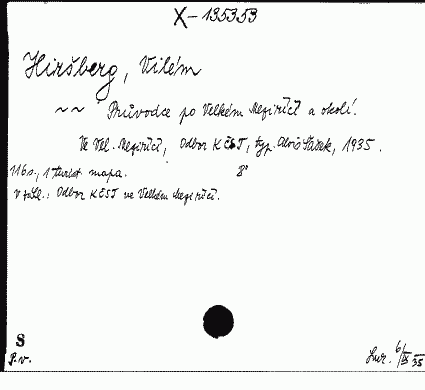 X-135353
Hiršberg, Vilém
~ ~ Průvodce po Velkém Meziříčí a okolí.
Ve Vel. Meziříčí, Odbor KČST, typ. Alois Šašek, 1935.
116 s., 1 turist mapa. 8°
V zákl.: Odbor KČST ve Velkém Meziříčí.
S
P.v. 6/IX 35